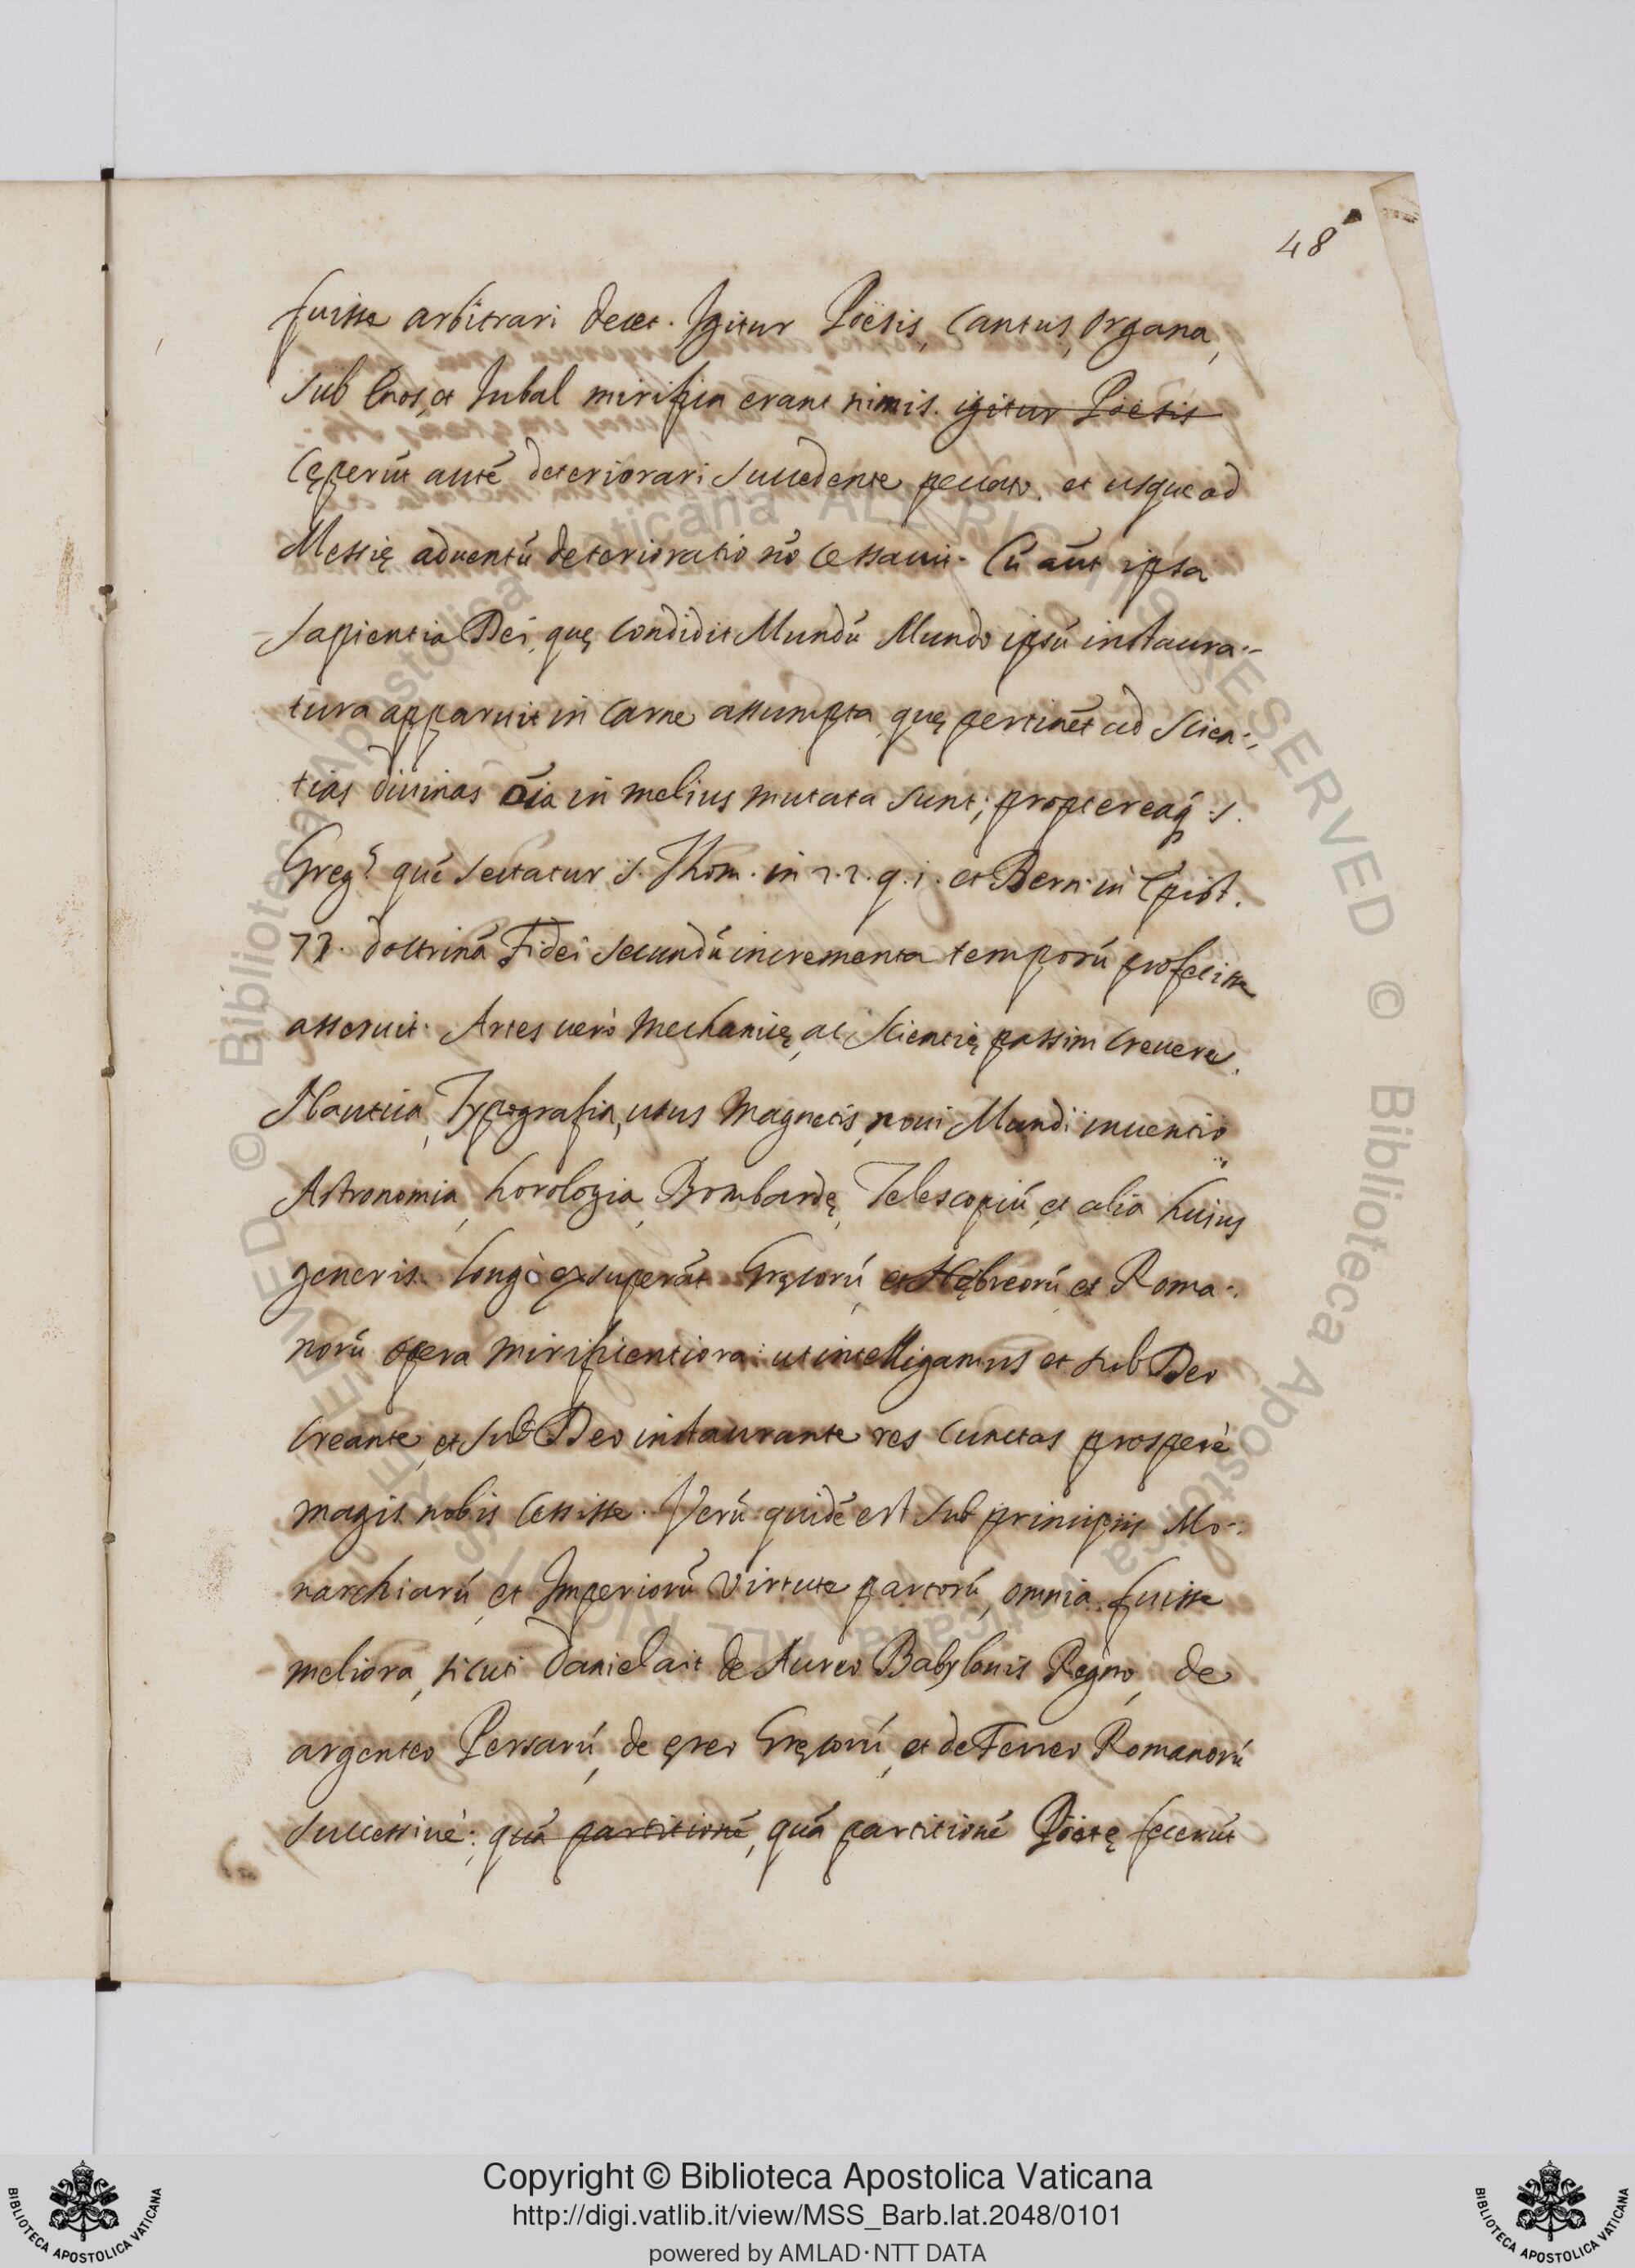 48
fuisse arbitrari decet. Igitur Poësis, Cantus, Organa,
sub Enos, et Jubal mirifica erant nimis. igitur Poësis
Cęperũt autẽ deteriorari succedente peccato. et usque ad
Messię aduentũ deterioratio nõ cessauit. Cũ aũt ipsa
sapientia Dei, quę condidit Mundũ Mundo ipsũ instaura-
tura apparuit in carne assumpta, quę pertinẽt ad scien-
tias diuinas õia in melius mutata sunt; proptereaq; s.
Greg.s quẽ sectatur s. Thom. in 2.2. q. 1. et Bern. in Epist.
77. doctrinã Fidei secundũ incrementa temporũ profecisse
asseruit. Artes uerò Mechanicę, ac scientię passim creuere.
Nautica, Typografia, usus Magnetis, noui Mundi inuentio,
Astronomia, horologia, Bombardę, Telescopiũ, et alia huius
generis longè exsuperãt Gręcorũ, et Hębreorũ, et Roma-
norũ opera mirificentiora: ut intelligamus et sub Deo
Creante, et sub Deo instaurante res cunctas prosperè
magis nobis cessisse. Verũ quidẽ est sub principijs Mo-
narchiarũ, et Imperiorũ virtute partorũ, omnia fuisse
meliora, sicuti Daniel ait de Aureo Babylonis Regno, de
argenteo Persarũ, de ęreo Gręcorũ, et de Ferreo Romanorũ
successiuè: quã partitionẽ, quã partitionẽ Poëtę fecerũt
© Biblioteca Apostolica Vaticana ALL RIGHTS RESERVED © Biblioteca Apostolica Vaticana ALL RIGHTS RESERVED
Copyright © Biblioteca Apostolica Vaticana
http://digi.vatlib.it/view/MSS_Barb.lat.2048/0101
powered by AMLAD·NTT DATA
BIBLIOTECA APOSTOLICA VATICANA
BIBLIOTECA APOSTOLICA VATICANA